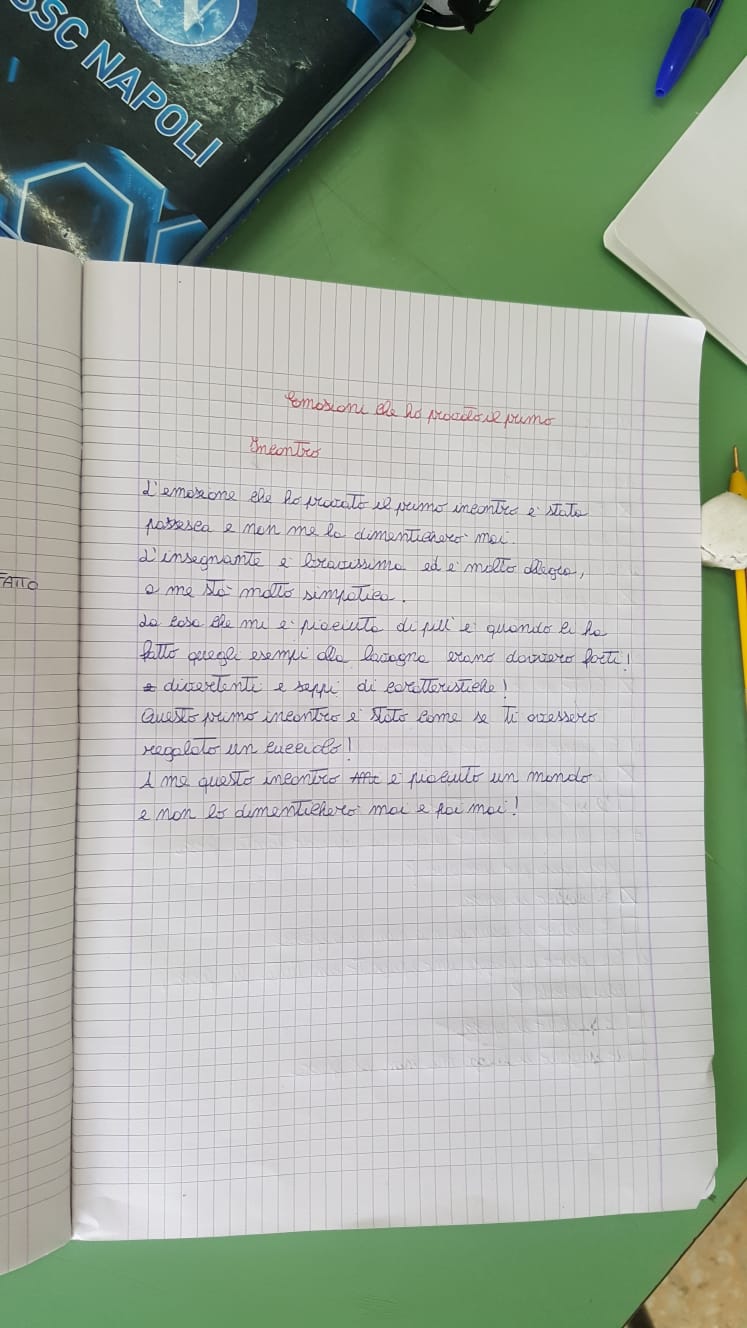 SSC NAPOLI
FATTO
Emozioni che ho provato il primo
Incontro
L'emozione che ho provato il primo incontro è stata
e non me la dimenticherò mai.
L'insegnante è bravissima ed è molto allegra,
a me stà molto simpatica.
La cosa che mi è piaciuta di più è quando ci ha
fatto quegli esempi alla lavagna erano davvero forti!
divertenti e seppi di caratteristiche!
Questo primo incontro è stato come se ti avessero
regalato un cucciolo!
A me questo incontro è piaciuto un mondo
e non lo dimenticherò mai e poi mai!